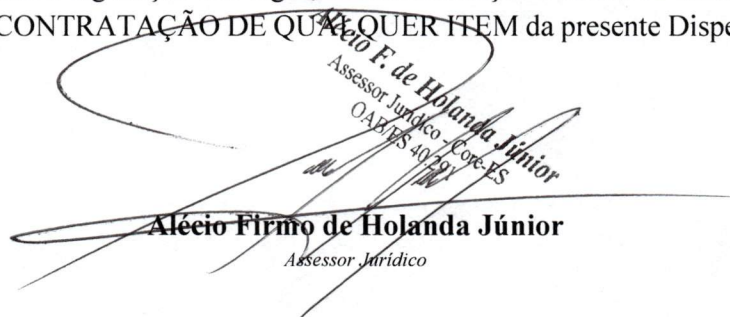 CONTRATAÇÃO DE QUALQUER ITEM da presente Dispe
Alécio F. de Holanda Júnior
Assessor Jurídico - Core-ES
OAB/ES
Alécio Firmo de Holanda Júnior
Assessor Jurídico